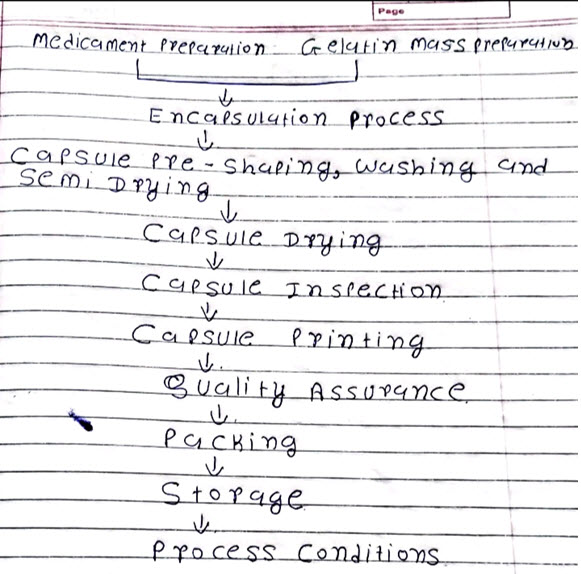 Page
Medicament preparation Gelatin mass preparation
↓
Encapsulation process
↓
Capsule pre-shaping, washing and
Semi Drying
↓
Capsule Drying
↓
Capsule Inspection
↓
Capsule printing
↓
Quality Assurance
↓
Packing
↓
Storage
↓
Process Conditions